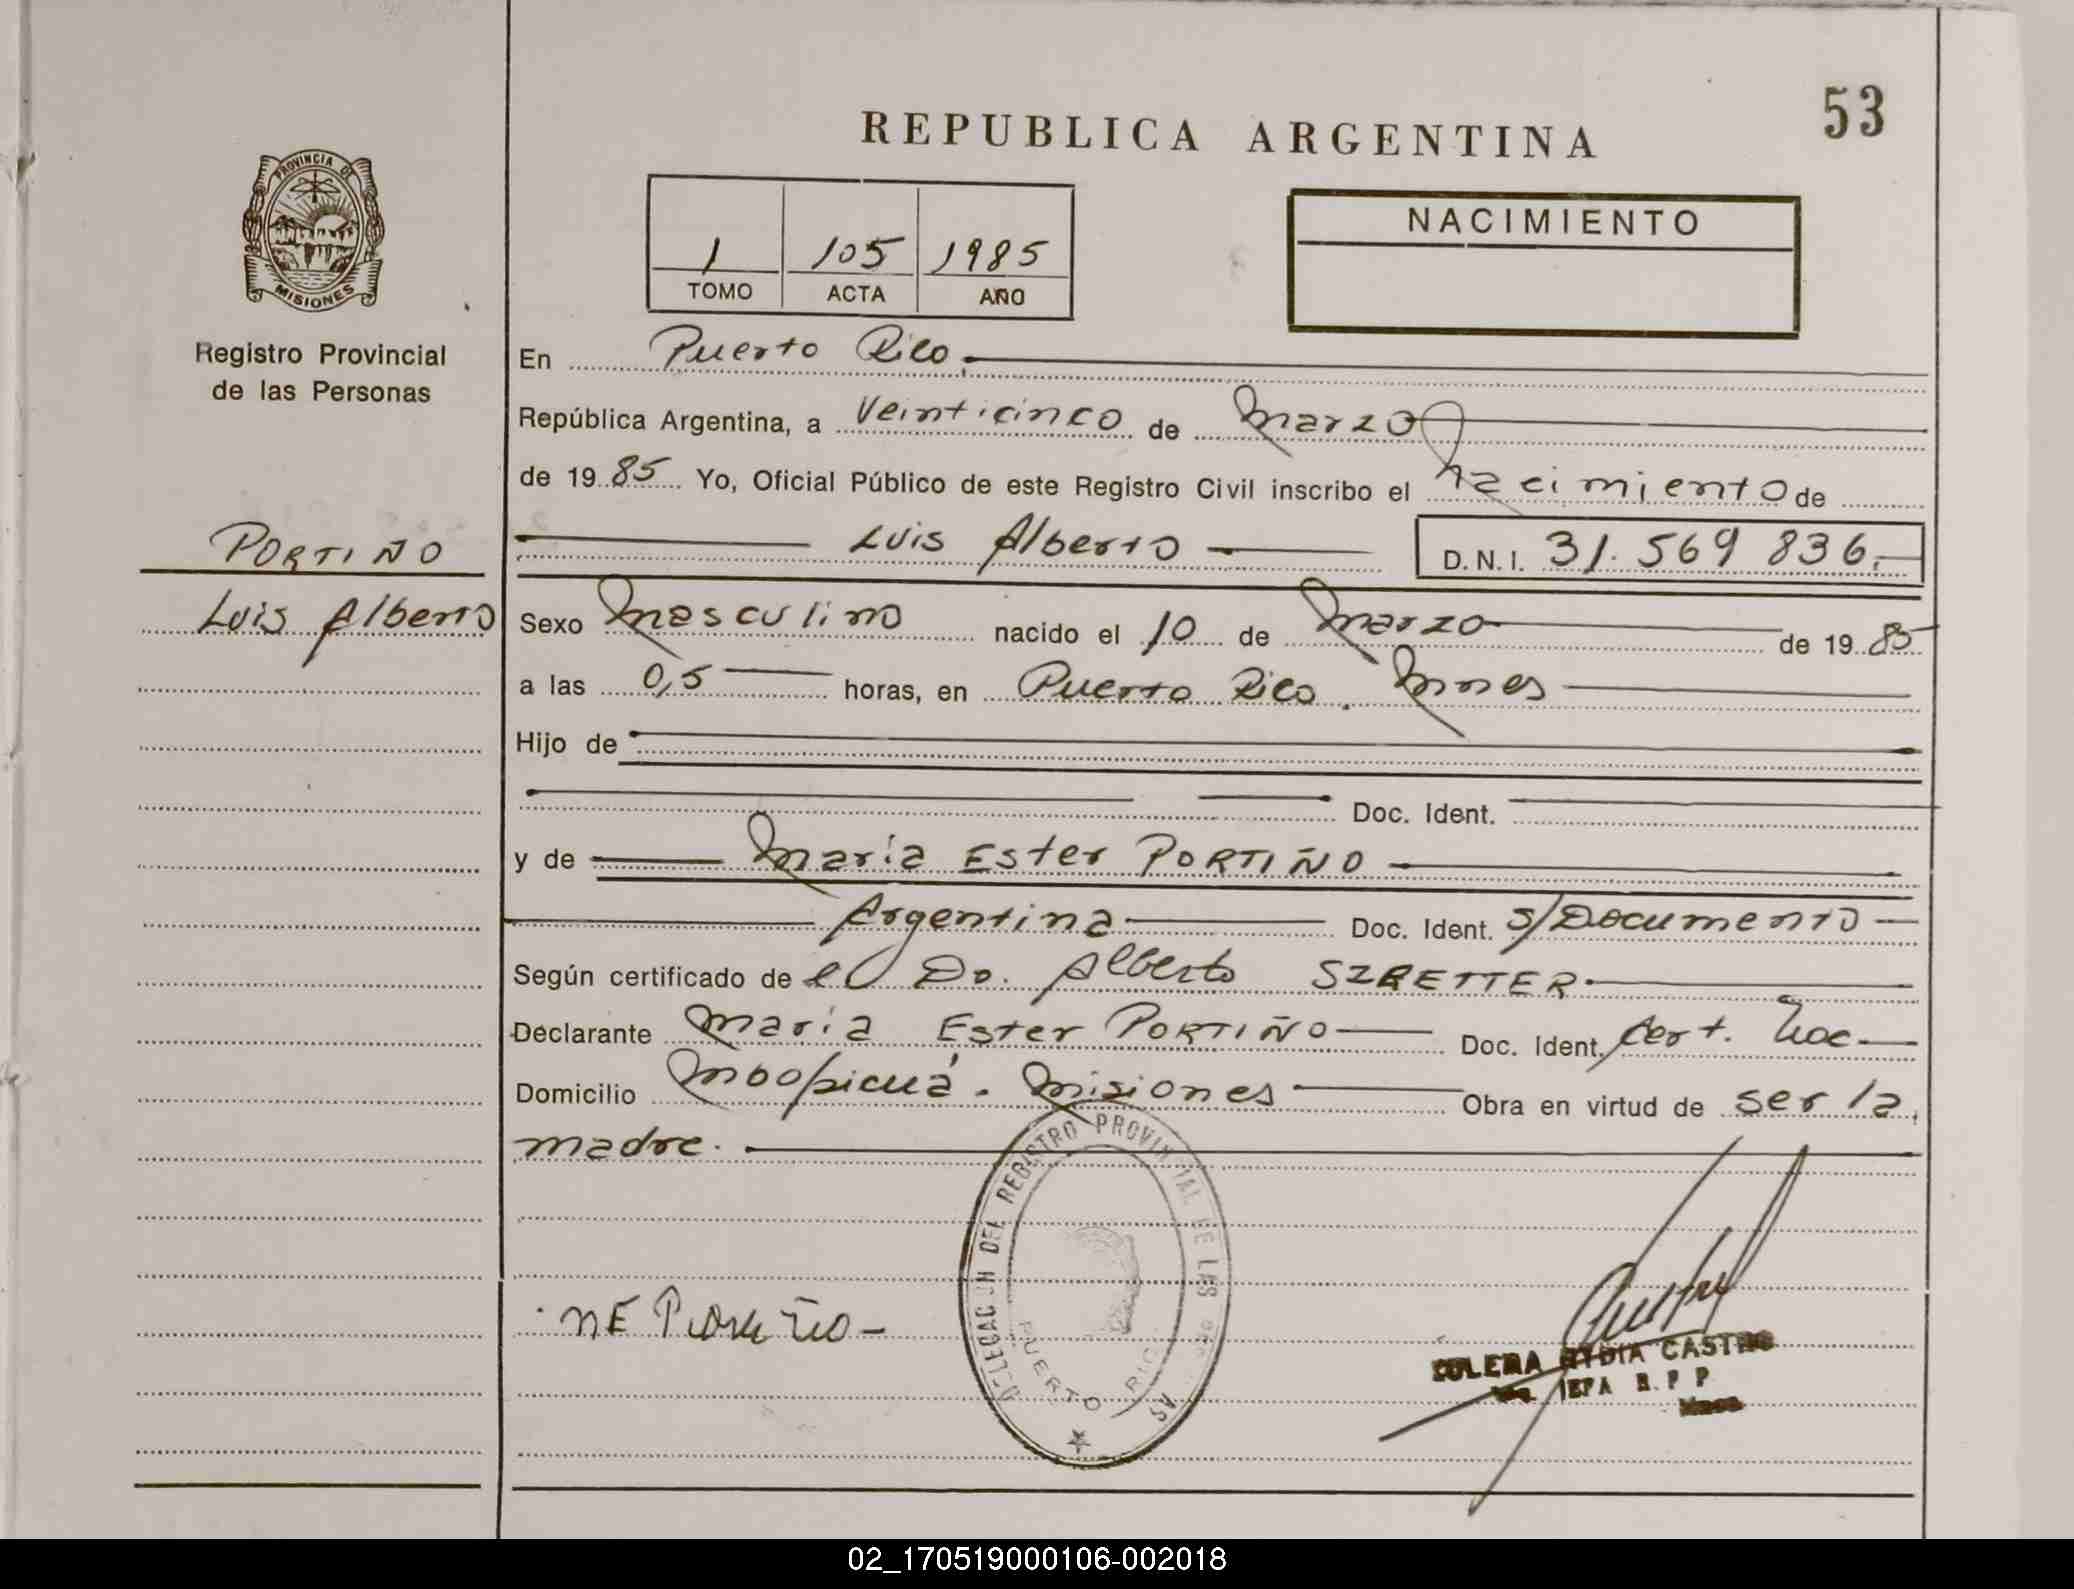 53
REPUBLICA ARGENTINA
PROVINCIA DE
MISIONES
Registro Provincial
de las Personas
1 105 1985
TOMO ACTA AÑO
NACIMIENTO
En Puerto Rico.
República Argentina, a Veinticinco de Marzo
de 1985 Yo, Oficial Público de este Registro Civil inscribo el nacimiento de
PORTIÑO
Luis Alberto
Luis Alberto D.N.I. 31.569 836.-
Sexo Masculino nacido el 10 de Marzo de 1985
a las 0,5 horas, en Puerto Rico. Mnes
Hijo de
Doc. Ident.
y de María Ester PORTIÑO
Argentina Doc. Ident. s/Documento
Según certificado de el Do. Alberto
Declarante María Ester PORTIÑO Doc. Ident. Cert. Nac
Domicilio Mbopicuá. Misiones Obra en virtud de ser la
madre.
DELEGACION DEL REGISTRO PROVINCIAL DE LAS
PUERTO RICO
CASTRO